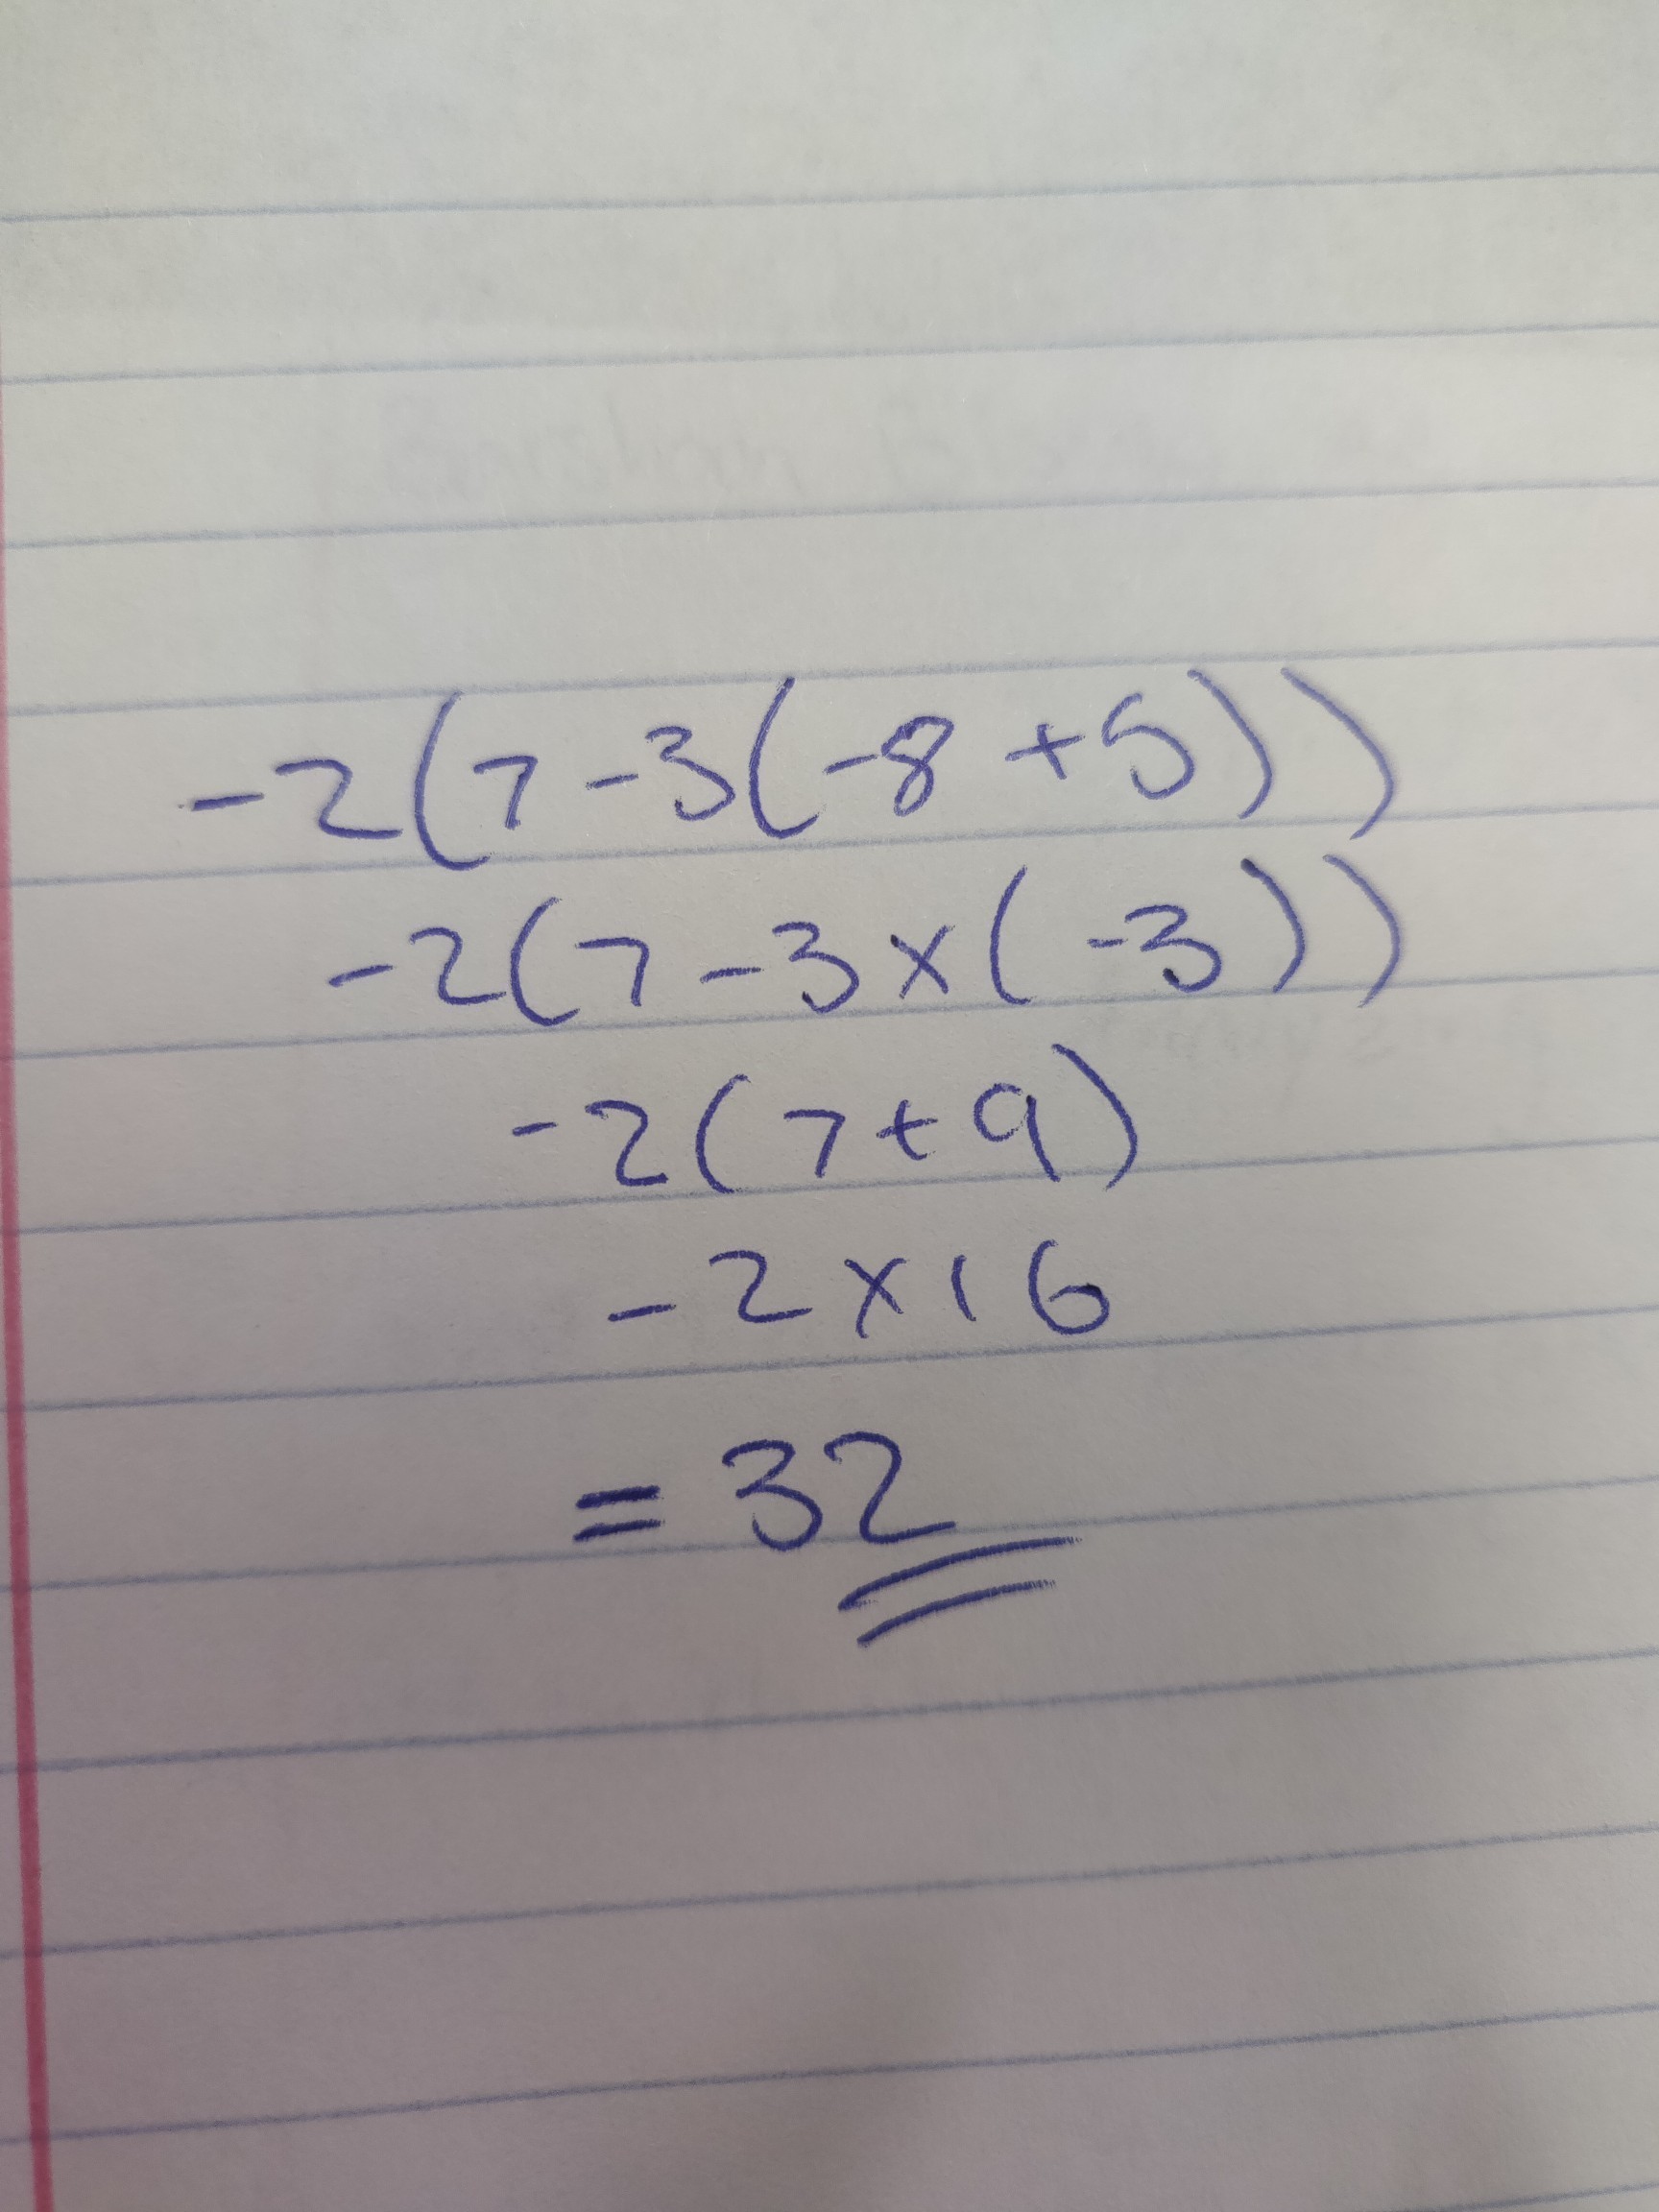 -2(7-3(-8+5))
-2(7-3×(-3))
-2(7+9)
-2×16
=32